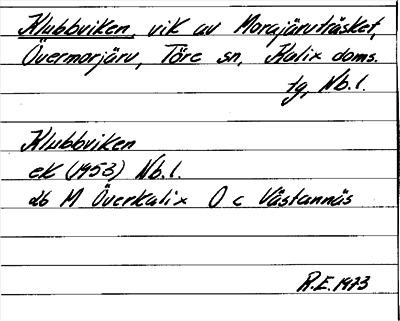 Klubbviken, vik av Morajärvträsket,
Övermorjärv, Töre sn, Kalix doms.
tg, Nb. l.
Klubbviken
ek (1953) Nb. l.
db M Överkalix O c Västannäs
R.E. 1973